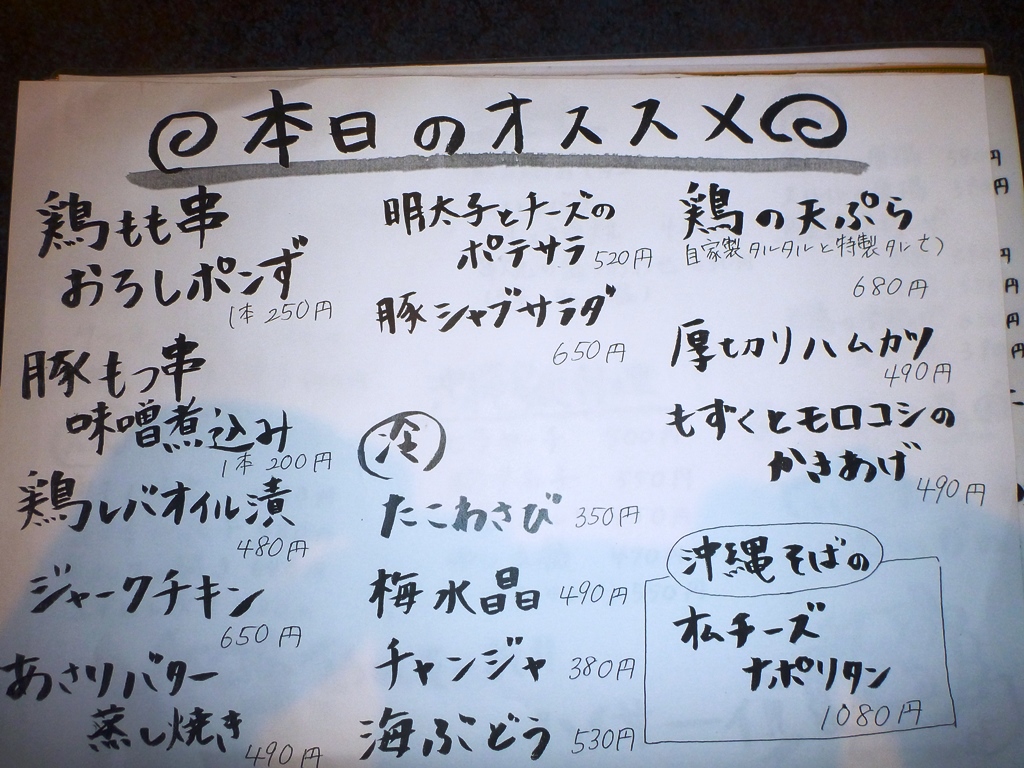 本日のオススメ
鶏もも串
おろしポンず
1本 250円
豚もつ串
味噌煮込み
1本 200円
鶏レバオイル漬
480円
ジャークチキン
650円
あさりバター
蒸し焼き
490円
明太子とチーズの
ポテサラ 520円
豚シャブサラダ
650円
冷
たこわさび 350円
梅水晶 490円
チャンジャ 380円
海ぶどう 530円
鶏の天ぷら
自家製タルタルと特製タルで
680円
厚切りハムカツ
490円
もずくとモロコシの
かきあげ 490円
沖縄そばの
チーズ
ナポリタン
1080円
円
円
円
円
円
円